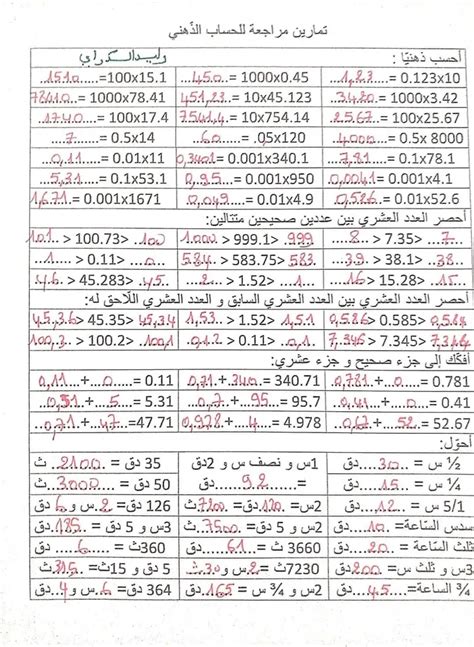 تمارين مراجعة للحساب الذهني
أحسب ذهنيًا : وليد السكراي
1,23 = 0.123x10 450 = 1000x0.45 1510 = 100x15.1
3420 = 1000x3.42 451,23 = 10x45.123 78410 = 1000x78.41
2567 = 100x25.67 7541,4 = 10x754.14 1740 = 100x17.4
4000 = 0.5x 8000 60 = .05x120 7 = 0.5x14
7,81 = 0.1x78.1 0,3401 = 0.001x340.1 0,11 = 0.01x11
0,0041 = 0.001x4.1 0,95 = 0.001x950 5,31 = 0.1x53.1
0,526 = 0.01x52.6 0,049 = 0.01x4.9 1,671 = 0.001x1671
أحصر العدد العشري بين عددين صحيحين متتاليين:
8 > 7.35> 7 1000 > 999.1> 999 101 > 100.73> 100
39 > 38.1> 38 584 > 583.75> 583 1 > 0.11> 0
16 > 15.28> 15 2 > 1.52> 1 46 > 45.283> 45
أحصر العدد العشري بين العدد العشري السابق و العدد العشري اللاحق له:
0,586 > 0.585> 0,584 1,53 > 1.52> 1,51 45,36 > 45.35> 45,34
7,346 > 7.345> 7,344 0,12 > 0.11> 0,1 100,3 > 100.2> 100,1
أفكك إلى جزء صحيح و جزء عشري:
0,781 + 0 = 0.781 0,71 + 340 = 340.71 0,11 + 0 = 0.11
0,41 + 0 = 0.41 0,7 + 95 = 95.7 0,31 + 5 = 5.31
0,67 + 52 = 52.67 0,978 + 4 = 4.978 0,71 + 47 =47.71
أحول:
½ س = 30 دق 1س و نصف س و 2دق 35 دق = 2100 ث
¼ س = 15 دق = 92 50 دق = 3000 ث
5/1 س = 12 دق 2س = 120 دق= 7200 ث 126 دق= 2 س و 6 دق
سدس الساعة= 10 دق 2س و 5 دق = 7500 ث 3س و 5 دق = 185 دق
ثلث الساعة = 20 دق 3660 ث = 61 دق 360ث = 6 دق
3س و ثلث س = 200 دق 7230ث = 2 س و 30 ث 5 دق و 15ث = 315 ث
¾ الساعة= 45 دق 2س و ¾ س = 165 دق 364 دق= 6 س و 4 دق